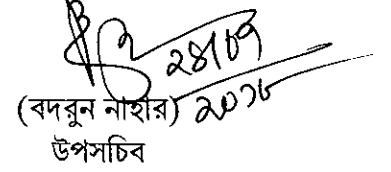 ২৪/০৭
২০১৮
(বদরুন নাহার)
উপসচিব